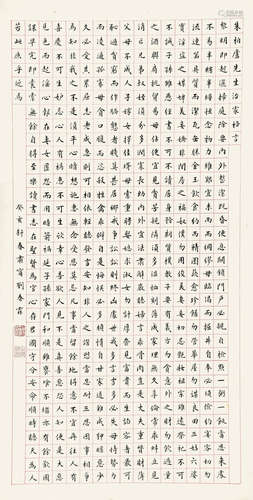 朱柏廬先生治家格言
黎明即起灑掃庭除要內外整潔既昏便息關鎖門戶必親自檢點一粥一飯當思來處
不易半絲半縷恆念物力維艱宜未雨而綢繆毋臨渴而掘井自奉必須儉約宴客切勿
流連器具質而潔瓦缶勝金玉飲食約而精園蔬愈珍饈勿營華屋勿謀良田三姑六婆
實淫盜之媒婢美妾嬌非閨房之福奴僕勿用俊美妻妾切忌豔妝祖宗雖遠祭祀不可
不誠子孫雖愚經書不可不讀居身務期質樸教子要有義方勿貪意外之財勿飲過量
之酒與肩挑貿易毋佔便宜見貧苦親鄰須加溫恤刻薄成家理無久享倫常乖舛立見
消亡兄弟叔姪須分多潤寡長幼內外宜法肅辭嚴聽婦言乖骨肉豈是丈夫重貲財薄
父母不成人子嫁女擇佳婿毋索重聘娶媳求淑女勿計厚奩見富貴而生諂容者最可
恥遇貧窮而作驕態者賤莫甚居家戒爭訟訟則終凶處世戒多言言多必失毋恃勢力
而凌逼孤寡毋貪口腹而恣殺生禽乖僻自是悔誤必多頹惰自甘家道難成狎暱惡少
久必受其累屈志老成急則可相依輕聽發言安知非人之譖訴當忍耐三思因事相爭
焉知非我之不是須平心暗想施惠無念受恩莫忘凡事當留餘地得意不宜再往人有
喜慶不可生妒忌心人有禍患不可生喜幸心善欲人見不是真善惡恐人知便是大惡
見色而起淫心報在妻女匿怨而用暗箭禍延子孫家門和順雖饔飧不繼亦有餘歡國
課早完即囊橐無餘自得至樂讀書志在聖賢為官心存君國守分安命順時聽天為人
若此庶乎近焉
癸亥新春肅甯劉春霖